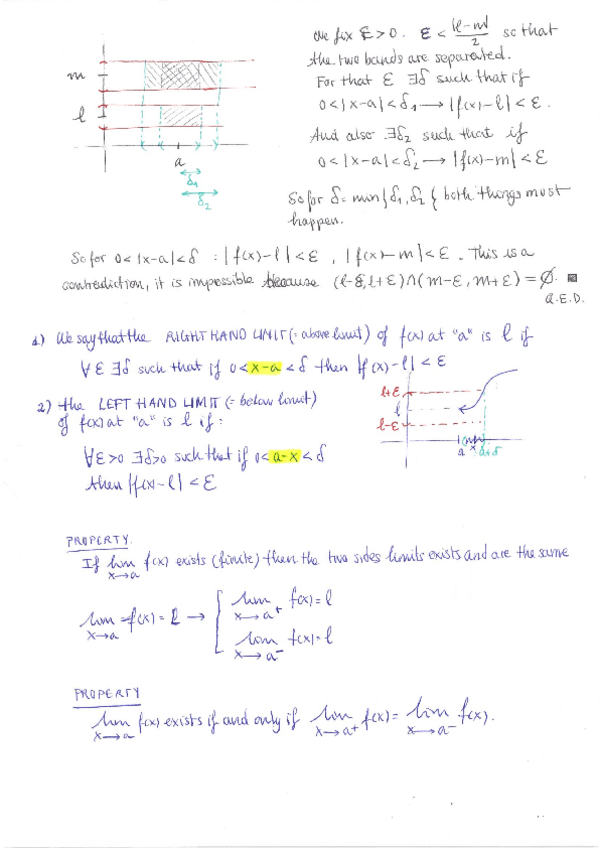 We fix ε>0. ε < |l-m|/2 so that
the two bands are separated.
For that ε ∃δ such that if
0<|x-a|<δ₁ → |f(x)-l|<ε.
And also ∃δ₂ such that if
0<|x-a|<δ₂ → |f(x)-m|<ε
So for δ=min{δ₁,δ₂{ both things must
happen.
m
l
a
δ₁
δ₂
So for 0<|x-a|<δ : |f(x)-l|<ε, |f(x)-m|<ε. This is a
contradiction, it is impossible because (l-ε,l+ε)∩(m-ε,m+ε)=∅.
Q.E.D.
1) We say that the RIGHT HAND LIMIT (= above limit) of f(x) at "a" is l if
∀ε ∃δ such that if 0<x-a<δ then |f(x)-l|<ε
2) the LEFT HAND LIMIT (= below limit)
of f(x) at "a" is l if:
∀ε>0 ∃δ>0 such that if 0<a-x<δ
then |f(x)-l|<ε
l+ε
l
l-ε
a x a+δ
PROPERTY.
If lim x→a f(x) exists (finite) then the two sides limits exists and are the same
lim x→a f(x)=l → { lim x→a⁺ f(x)=l
lim x→a⁻ f(x)=l
PROPERTY
lim x→a f(x) exists if and only if lim x→a⁺ f(x)= lim x→a⁻ f(x).